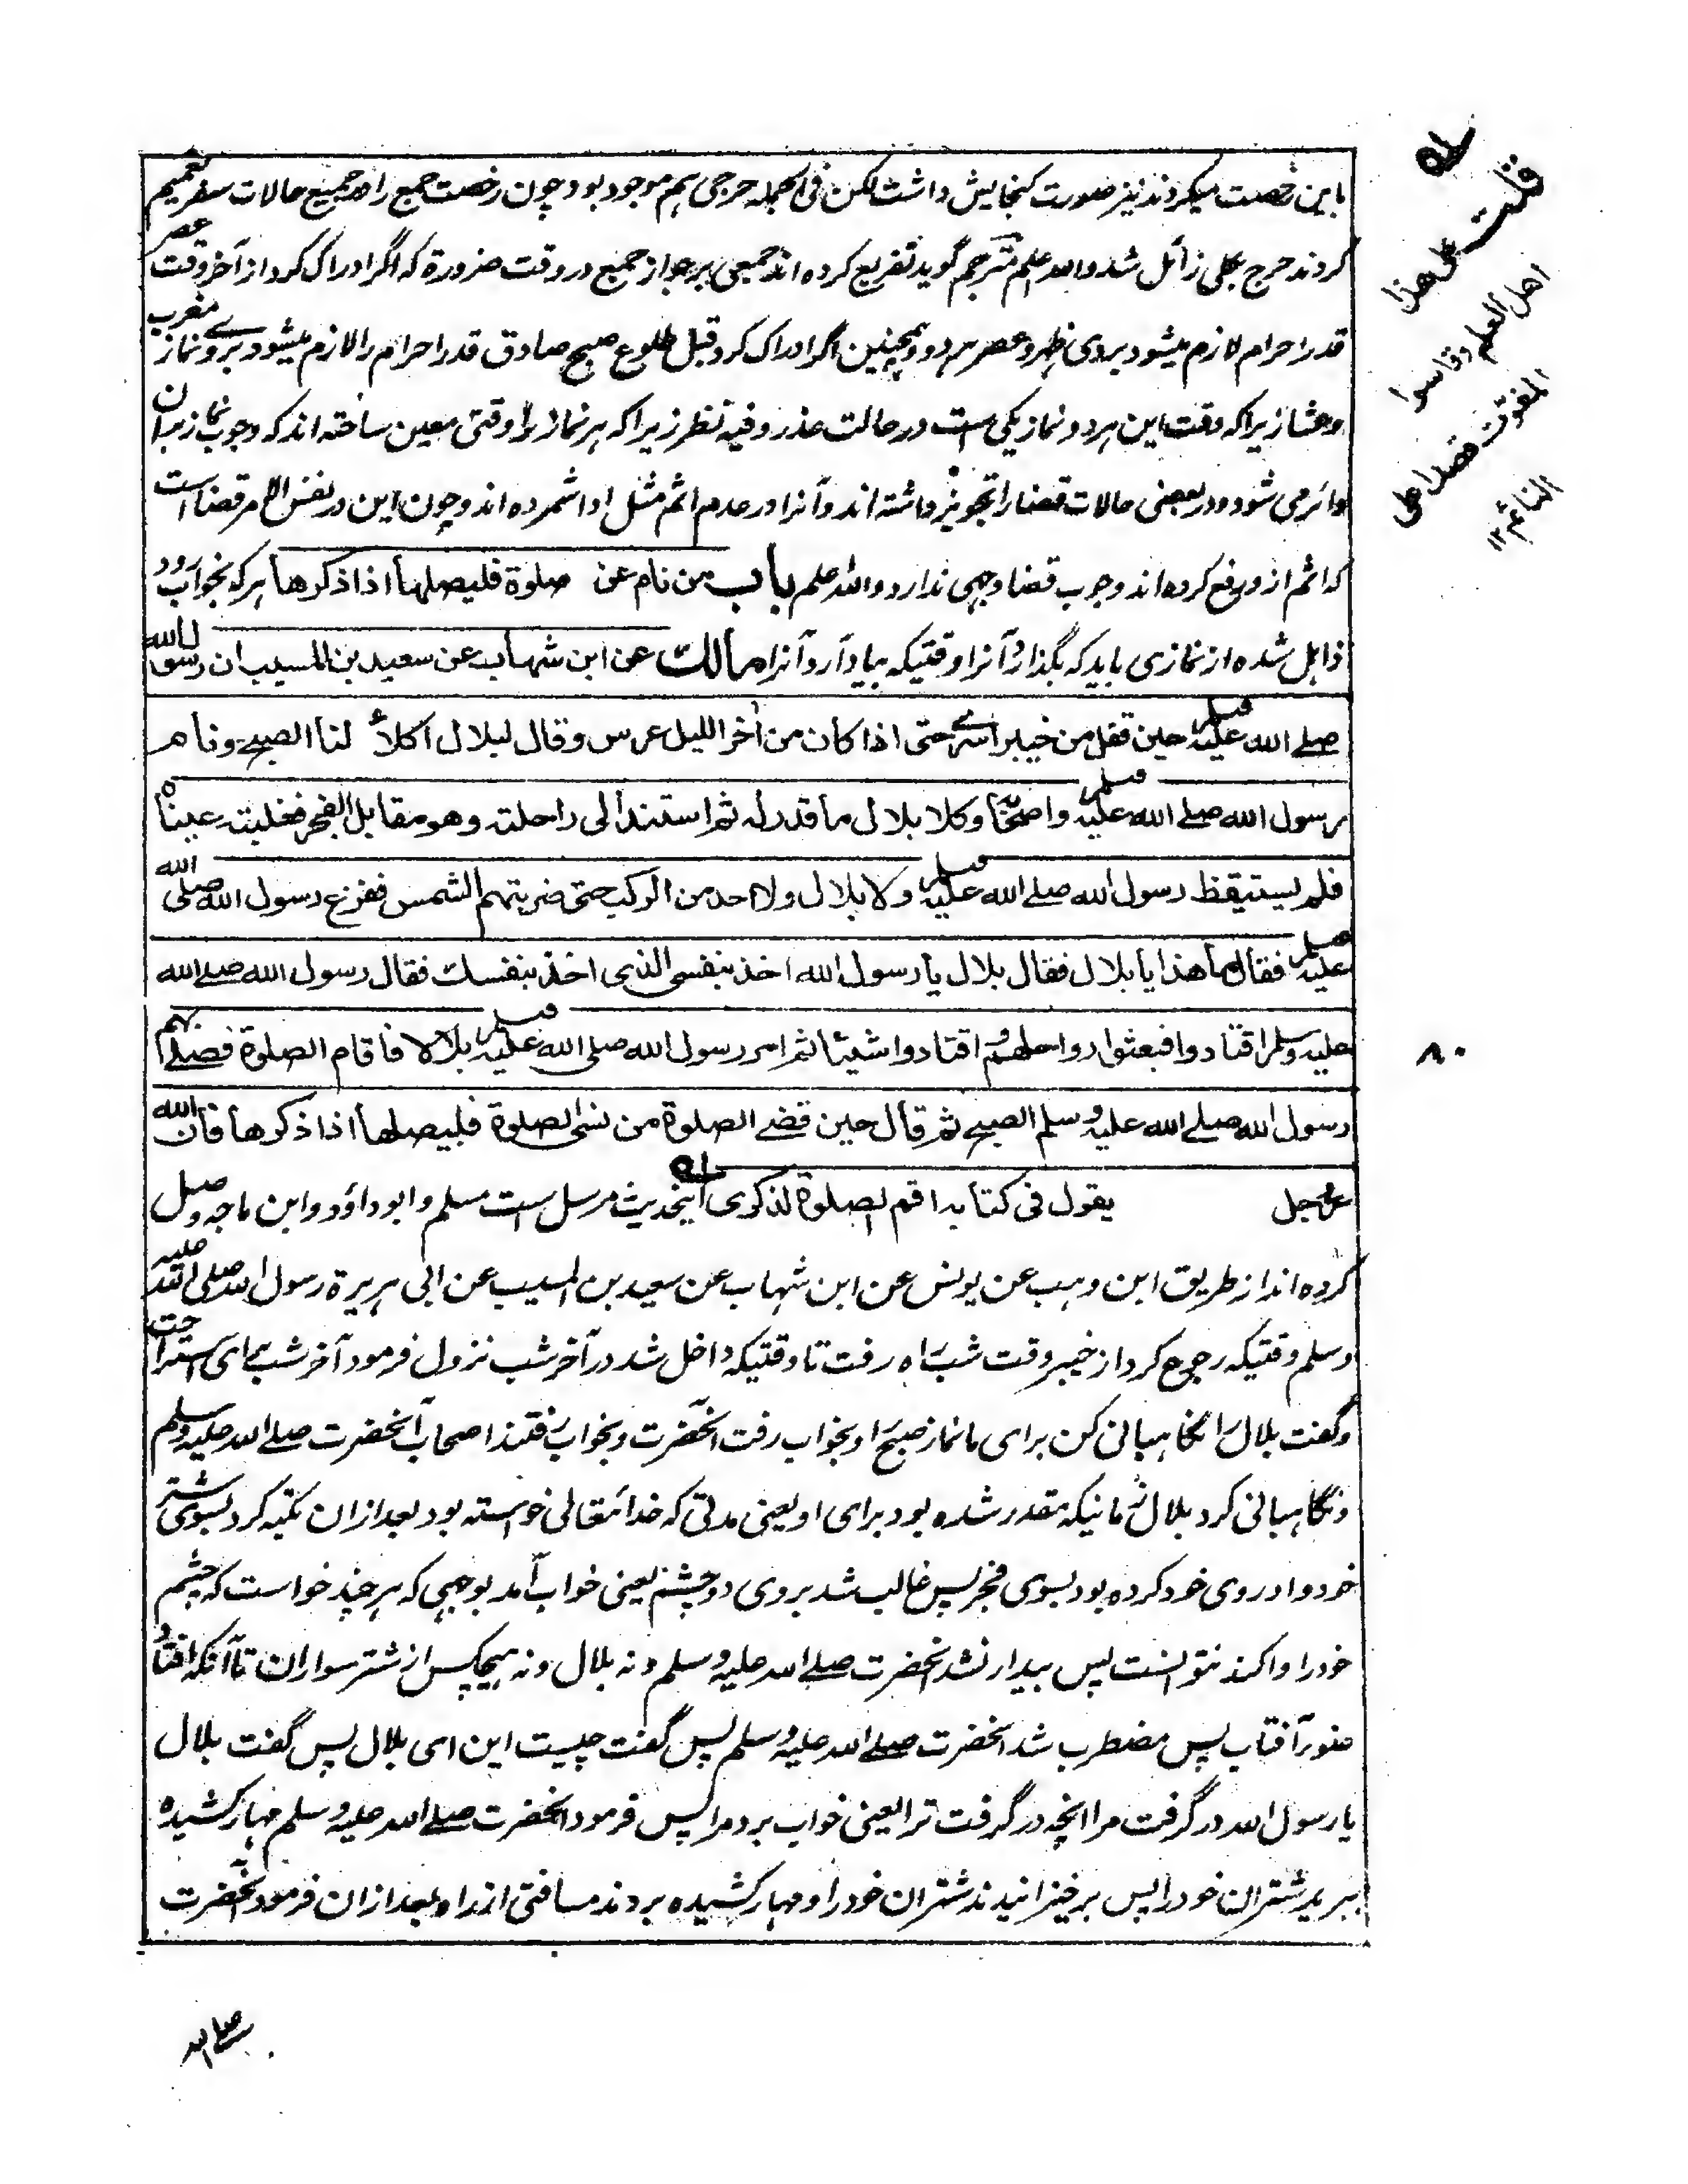 باین رخصت میکردند نیز صورت گنجایش داشت لکن فی الجمله حرجی هم موجود بود چون رخصت جمع را در جمیع حالات سفر تعمیم
کردند حرج بکلی زائل شد والله اعلم مترجم گوید تفریع کرده اند جمعی بر جواز جمع در وقت ضرورة که اگر ادراک کرد از آخر وقت عصر
قدر احرام لازم میشود بر وی ظهر و عصر هر دو و همچنین اگر ادراک کرد قبل طلوع صبح صادق قدر احرام را لازم میشود بر وے نماز مغرب
و عشا زیرا که وقت این هر دو نماز یکی است در حالت عذر و فیه نظر زیرا که هر نماز را وقتی معین ساخته اند که وجوب نماز بران
دائر می شود و در بعضی حالات قضا را تجویز داشته اند و آنرا در عدم اثم مثل ادا شمرده اند و چون این در نفس الامر قضا است
که اثم از و رفع کرده اند وجوب قضا وجهی ندارد والله اعلم باب من نام عن صلوة فلیصلها اذا ذکرها هر که بخواب رود
ذاهل شده از نمازی باید که بگذارد آنرا وقتیکه بیاد آرد آنرا مالك عن ابن شهاب عن سعید بن المسیب ان رسول الله
صلے الله علیه وسلم حین قفل من خیبر اسرے حتی اذا کان من اٰخر اللیل عرس وقال لبلال اکلأ لنا الصبح ونام
رسول الله صلے الله علیه وسلم واصحابه وکلا بلال ما قدر له ثم استند الی راحلته وهو مقابل الفجر فغلبته عیناه
فلم یستیقظ رسول الله صلے الله علیه وسلم ولا بلال ولا احد من الرکب حتی ضربتهم الشمس ففزع رسول الله صلی الله
علیه وسلم فقال ما هذا یا بلال فقال بلال یا رسول الله اخذ بنفسی الذی اخذ بنفسك فقال رسول الله صلے الله
علیه وسلم اقتادوا فبعثوا رواحلهم واقتادوا شیئا ثم امر رسول الله صلی الله علیه وسلم بلالا فاقام الصلوة فصلے بهم
رسول الله صلے الله علیه وسلم الصبح ثم قال حین قضے الصلوة من نسی الصلوة فلیصلها اذا ذکرها فان الله
عز وجل یقول فی کتابه اقم الصلوة لذکری اینحدیث مرسل است مسلم و ابو داؤد و ابن ماجه وصل
کرده اند از طریق ابن وهب عن یونس عن ابن شهاب عن سعید بن المسیب عن ابی هریرة رسول الله صلی الله علیه
وسلم وقتیکه رجوع کرد از خیبر وقت شب راه رفت تا وقتیکه داخل شد در آخر شب نزول فرمود آخر شب برای استراحت
و گفت بلال را نگاهبانی کن برای ما نماز صبح را و بخواب رفت آنحضرت و بخواب رفتند اصحاب آنحضرت صلے الله علیه وسلم
و نگاهبانی کرد بلال زمانیکه مقدر شده بود برای او یعنی مدتی که خدا تعالی خواسته بود بعد ازان تکیه کرد بسوی شتر
خود و او روی خود کرده بود بسوی فجر پس غالب شد بر وی دو چشم یعنی خواب آمد بوجهی که هر چند خواست که چشم
خود را وا کند نتوانست پس بیدار نشد آنحضرت صلے الله علیه وسلم و نه بلال و نه هیچکس از شتر سواران تا آنکه افتاد
ضوء آفتاب پس مضطرب شد آنحضرت صلے الله علیه وسلم پس گفت چیست این ای بلال پس گفت بلال
یا رسول الله در گرفت مرا انچه در گرفت ترا یعنی خواب برد مرا پس فرمود آنحضرت صلے الله علیه وسلم مهار کشیده
ببرید شتران خود را پس برخیزانیدند شتران خود را و مهار کشیده بردند مسافتی از راه بعد ازان فرمود آنحضرت
صلے الله
قلت علی هذا
اهل العلم وقاسوا
المفوت قصدا علی
النائم ۱۲
۸۰